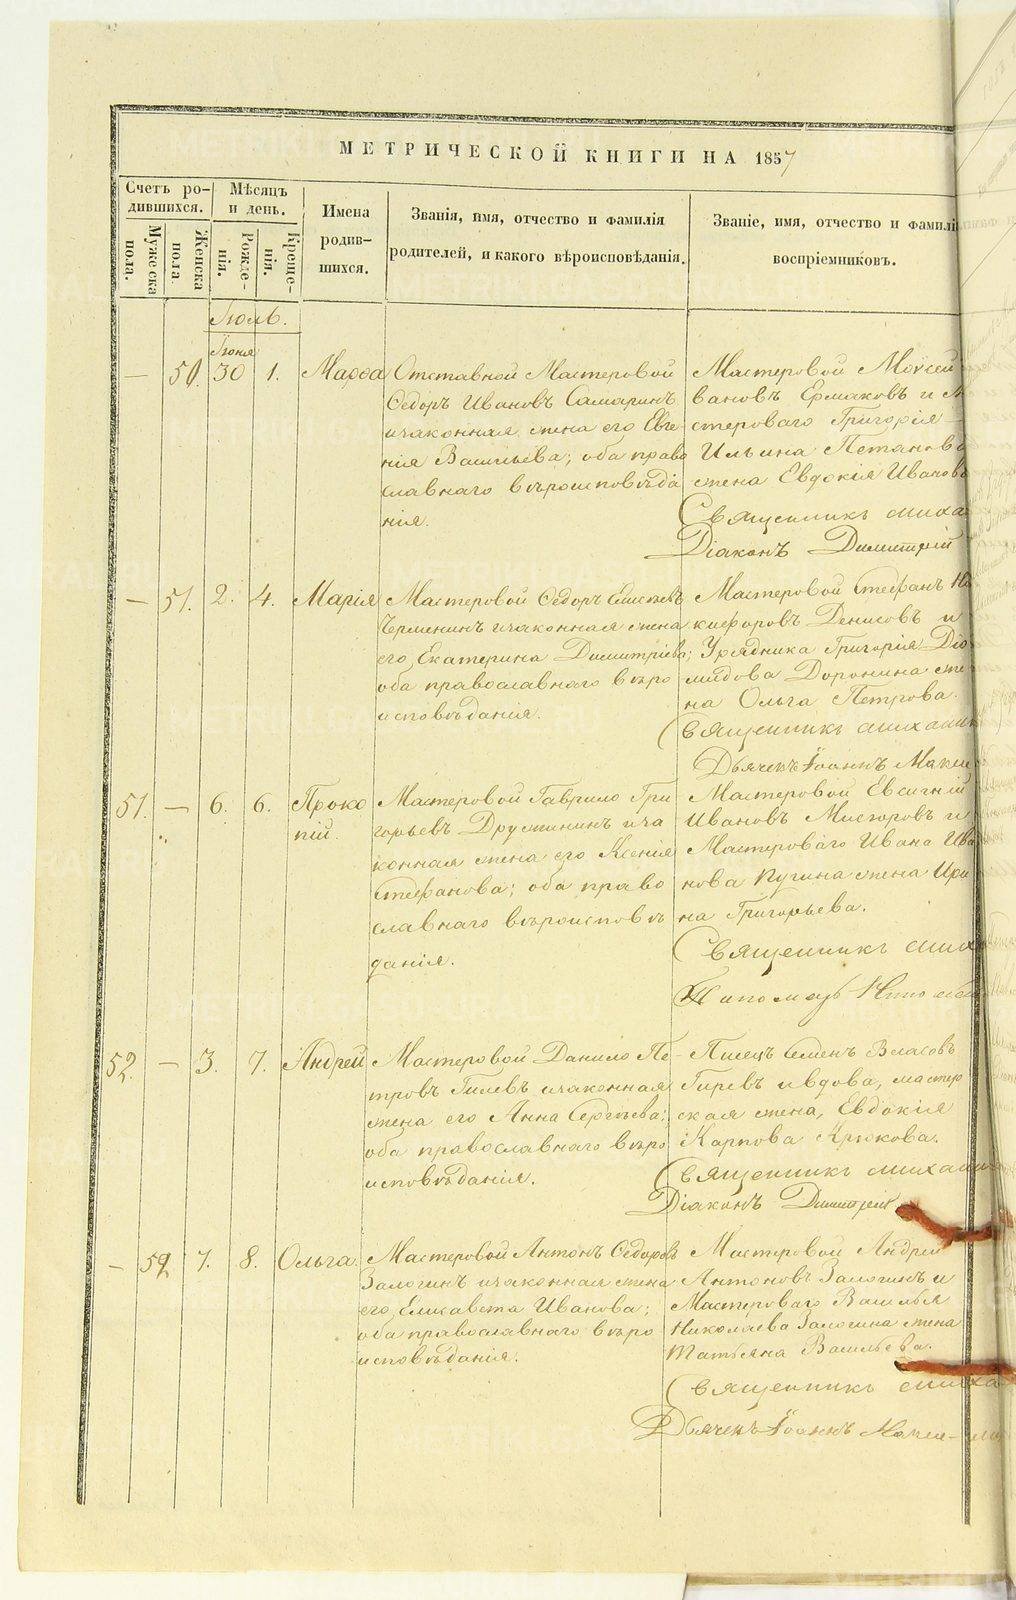 МЕТРИЧЕСКОЙ КНИГИ НА 1857
Счетъ ро-
дившихся.
Мужеска
пола.
Женска
пола.
Мѣсяцъ
и день.
Рожде-
нія.
Креще-
нія.
Имена
родив-
шихся.
Званія, имя, отчество и фамилія
родителей, и какого вѣроисповѣданія.
Званіе, имя, отчество и фамилі
воспріемниковъ.
Іюль.
Іюня
— 50. 30 1. Марѳа
Отставной Мастеровой
Ѳедоръ Ивановъ Самаринъ
и законная жена его Евге
нія Васильева; оба право
славнаго вѣроисповѣда
нія.
Мастеровой Моѵсей
вановъ Ермаковъ и М
стероваго Григорія
Ильина
жена Евдокія Иванов
Священникъ Миха
Діаконъ Димитрій
— 51. 2. 4. Марія
Мастеровой Ѳедоръ
и законная жена
его Екатерина Димитріева;
оба православнаго вѣро
исповѣданія.
Мастеровой Стефанъ Ни
кифоровъ Денисовъ и
Урядника Григорія Діо
мидова Доронина же
на Ольга Петрова.
Священникъ Михаил
Дьячекъ Іоаннъ
51. — 6. 6. Проко
пій.
Мастеровой Гаврило Гри
горьевъ Дружининъ и за
конная жена его Ксенія
Стефанова; оба право
славнаго вѣроисповѣ
данія.
Мастеровой Евсигній
Ивановъ и
Мастероваго Ивана Ива
нова Пугина жена Ири
на Григорьева.
Священникъ Миха
Пономарь
52. — 3. 7. Андрей
Мастеровой Данило Пе-
тровъ Гилевъ и законная
жена его Анна Сергѣева;
оба православнаго вѣро
исповѣданія.
Писецъ Семенъ Власовъ
Гиревъ и вдова, мастер
ская жена, Евдокія
Карпова Крюкова.
Священникъ Михаил
Діаконъ Димитрій
— 52 7. 8. Ольга.
Мастеровой Антонъ Ѳедоровъ
Залогинъ и законная жена
его Елисавета Иванова;
оба православнаго вѣро
исповѣданія.
Мастеровой Андрей
Антоновъ Залогинъ и
Мастероваго Василья
Николаева Залогина жена
Татьяна Васильева.
Священникъ Миха
Дьячекъ Іоаннъ
METRIKI.GASO-URAL.RU